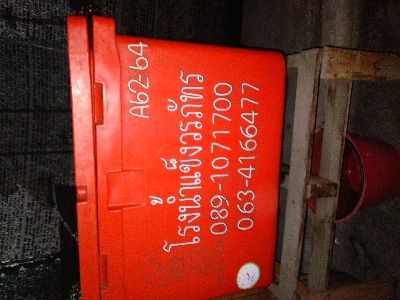 A62-64
โรงน้ำแข็งวรภัทร
089-1071700
063-4166477